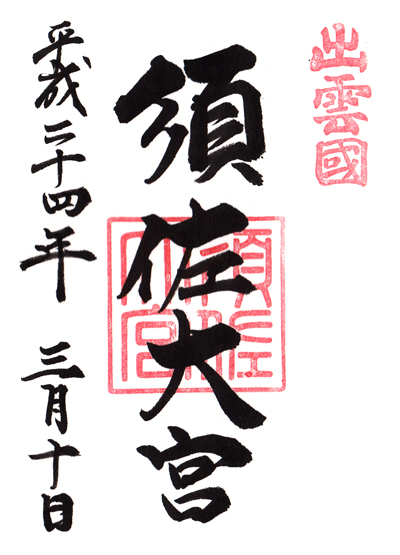 出雲國
須佐大宮
須佐大宮
平成二十四年 三月十日